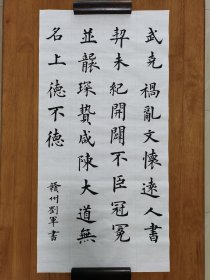 武克禍亂文懷遠人書
契未紀開闢不臣冠冕
並襲琛贄咸陳大道無
名上德不德
赣州劉軍書